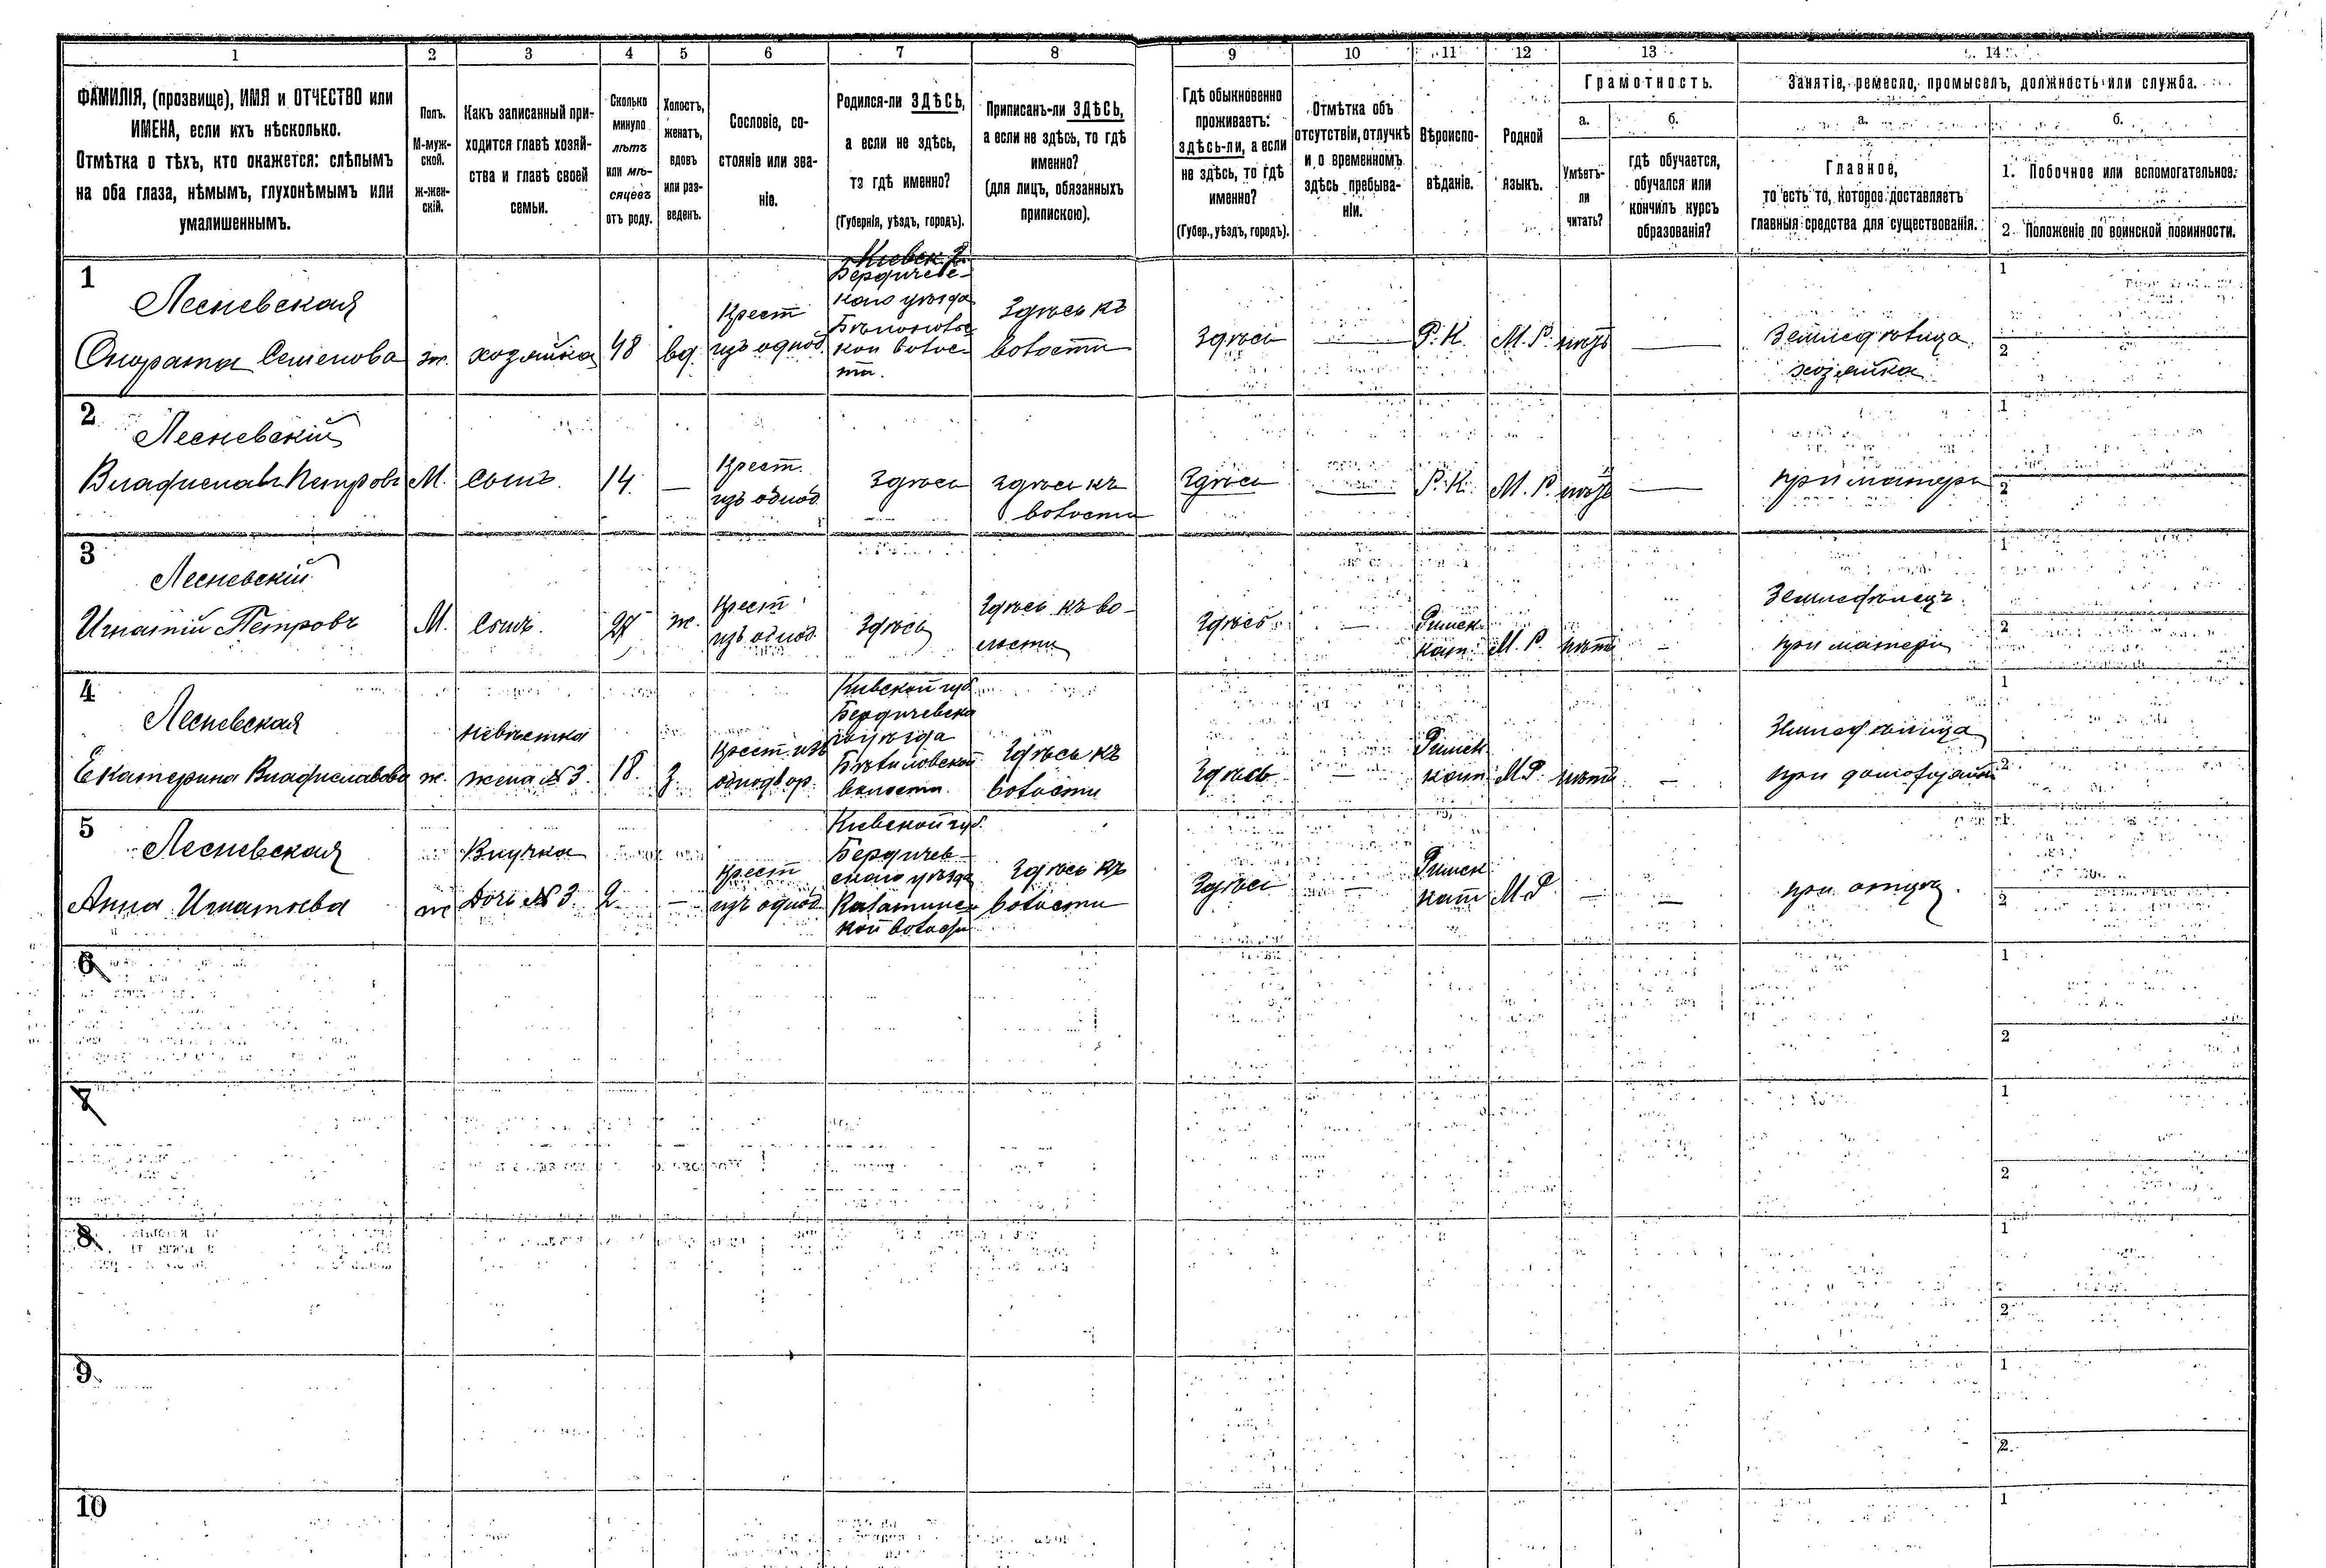 1 2 3 4 5 6 7 8 9 10 11 12 13 14
ФАМИЛІЯ, (прозвище), ИМЯ и ОТЧЕСТВО или
ИМЕНА, если ихъ нѣсколько.
Отмѣтка о тѣхъ, кто окажется: слѣпымъ
на оба глаза, нѣмымъ, глухонѣмымъ или
умалишеннымъ.
Полъ.
М-муж-
ской.
ж-жен-
скій.
Какъ записанный при-
ходится главѣ хозяй-
ства и главѣ своей
семьи.
Сколько
минуло
лѣтъ
или мѣ-
сяцевъ
отъ роду.
Холостъ,
женатъ,
вдовъ
или раз-
веденъ.
Сословіе, со-
стояніе или зва-
ніе.
Родился-ли ЗДѢСЬ,
а если не здѣсь,
то гдѣ именно?
(Губернія, уѣздъ, городъ).
Приписанъ-ли ЗДѢСЬ,
а если не здѣсь, то гдѣ
именно?
(для лицъ, обязанныхъ
припискою).
Гдѣ обыкновенно
проживаетъ:
здѣсь-ли, а если
не здѣсь, то гдѣ
именно?
(Губер., уѣздъ, городъ).
Отмѣтка объ
отсутствіи, отлучкѣ
и о временномъ
здѣсь пребыва-
ніи.
Вѣроиспо-
вѣданіе.
Родной
языкъ.
Грамотность.
а.
Умѣетъ-
ли
читать?
б.
гдѣ обучается,
обучался или
кончилъ курсъ
образованія?
Занятіе, ремесло, промыселъ, должность или служба.
а.
Главное,
то есть то, которое доставляетъ
главныя средства для существованія.
б.
1. Побочное или вспомогательное.
2. Положеніе по воинской повинности.
1
Лесневская
Семенова
ж.
хозяйка
48
вд.
Крест
изъ однод.
Бердичевс-
каго уѣзда
кой волос-
ти.
Здѣсь къ
волости
Здѣсь
—
Р. К.
М. Р.
нѣтъ
—
Земледѣлица
хозяйка
1
2
2
Лесневскій
Владиславъ Петровъ
М.
сынъ.
14.
—
Крест.
изъ однод.
Здѣсь
здѣсь къ
волости
Здѣсь
—
Р. К.
М. Р.
нѣтъ
—
при матери
1
2
3
Лесневскій
Игнатій Петровъ
М.
сынъ.
ж.
Крест
изъ однод.
Здѣсь
Здѣсь къ во-
лости
Здѣсь
—
Римск.
кат.
М. Р.
нѣтъ
—
Земледѣлецъ
при матери
1
2
4
Лесневская
Екатерина Владиславова
ж.
невѣстка
жена №3.
18.
З.
Крест. изъ
однодвор.
Кіевской губ.
Бердичевска
го уѣзда
волости.
Здѣсь къ
волости
Здѣсь
—
Римск
кат
М.Р.
нѣтъ
—
Земледѣлица
при
1
2
5
Лесневская
Анна Игнатьева
ж
Внучка
дочь №3.
2.
—
Крест
изъ однод
Кіевской губ.
Бердичев-
скаго уѣзда
кой волости
Здѣсь къ
волости
Здѣсь
—
Римск
кат
М.Р
—
—
при отцѣ.
1
2
6
1
2
7
1
2
8
1
2
9
1
2
10
1